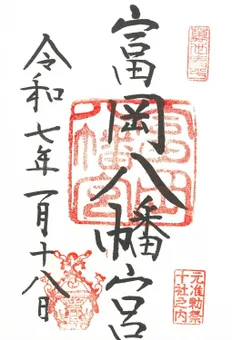 富岡八幡宮
令和七年一月十八日
元准勅祭
十社之内